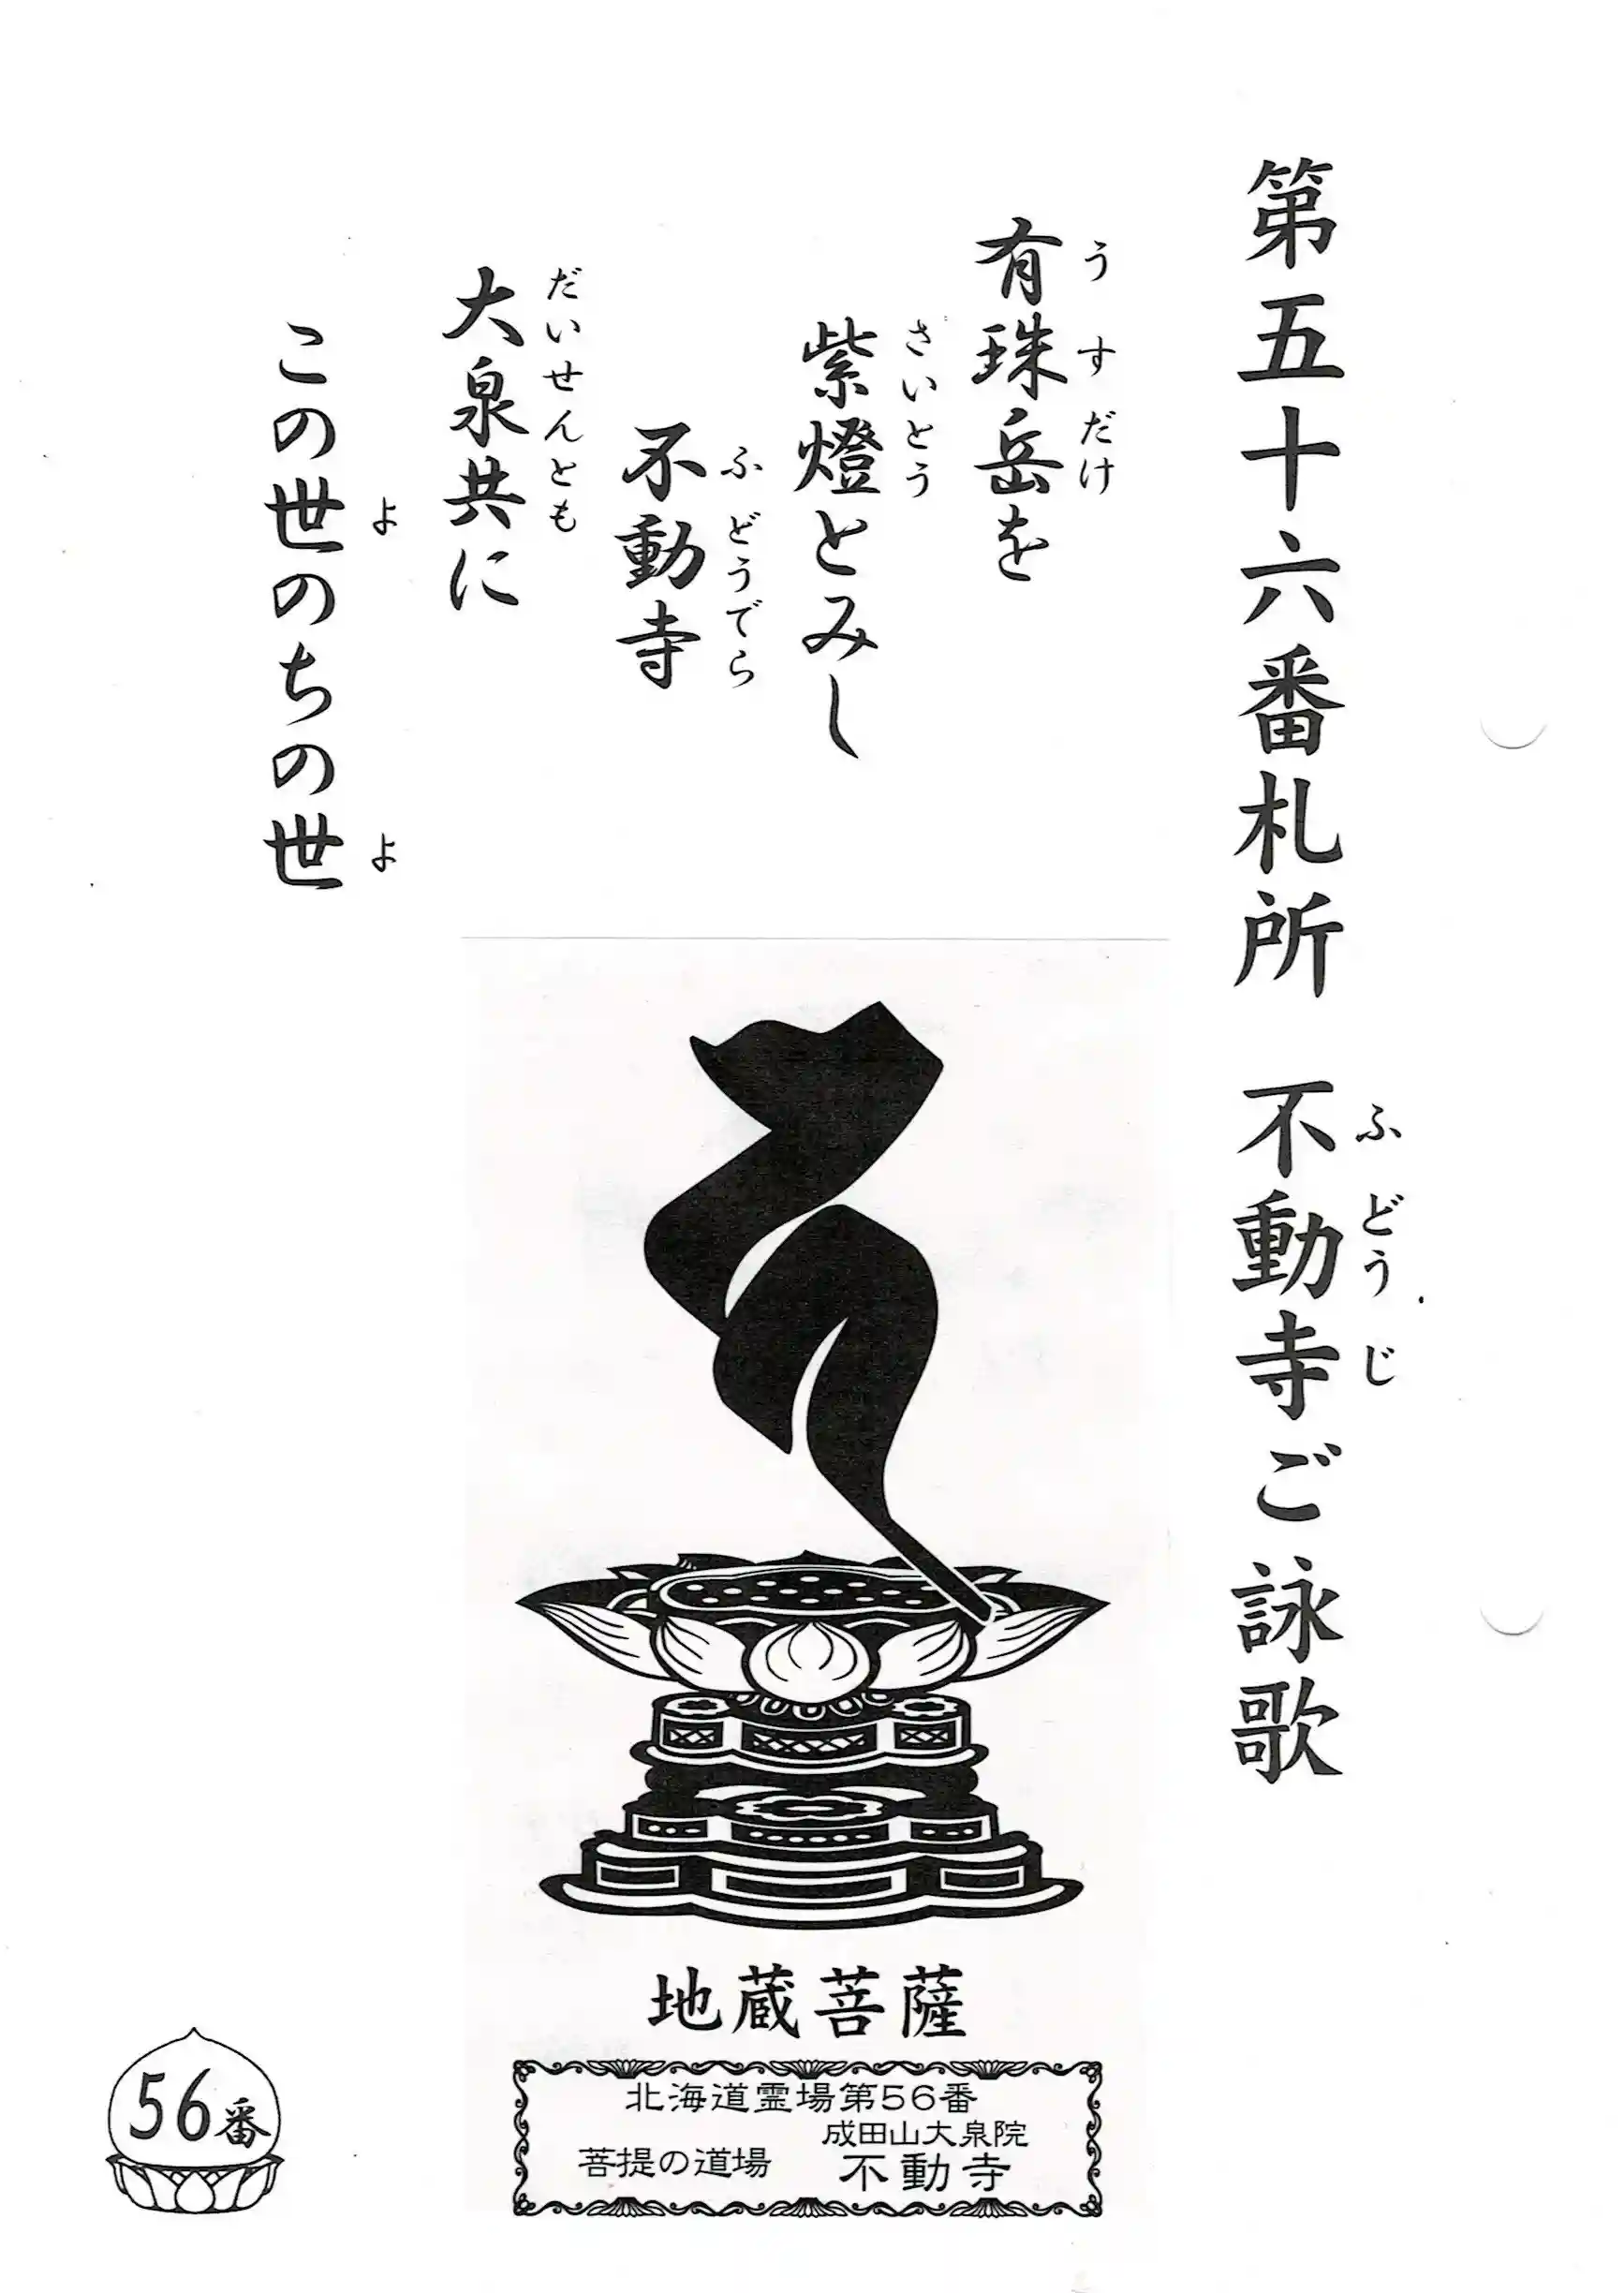 第五十六番札所 不動寺ご詠歌
ふどうじ
有珠岳を
うすだけ
紫燈とみし
さいとう
不動寺
ふどうでら
大泉共に
だいせんとも
この世のちの世
よ よ
地蔵菩薩
北海道霊場第56番
菩提の道場 成田山大泉院
不動寺
56番